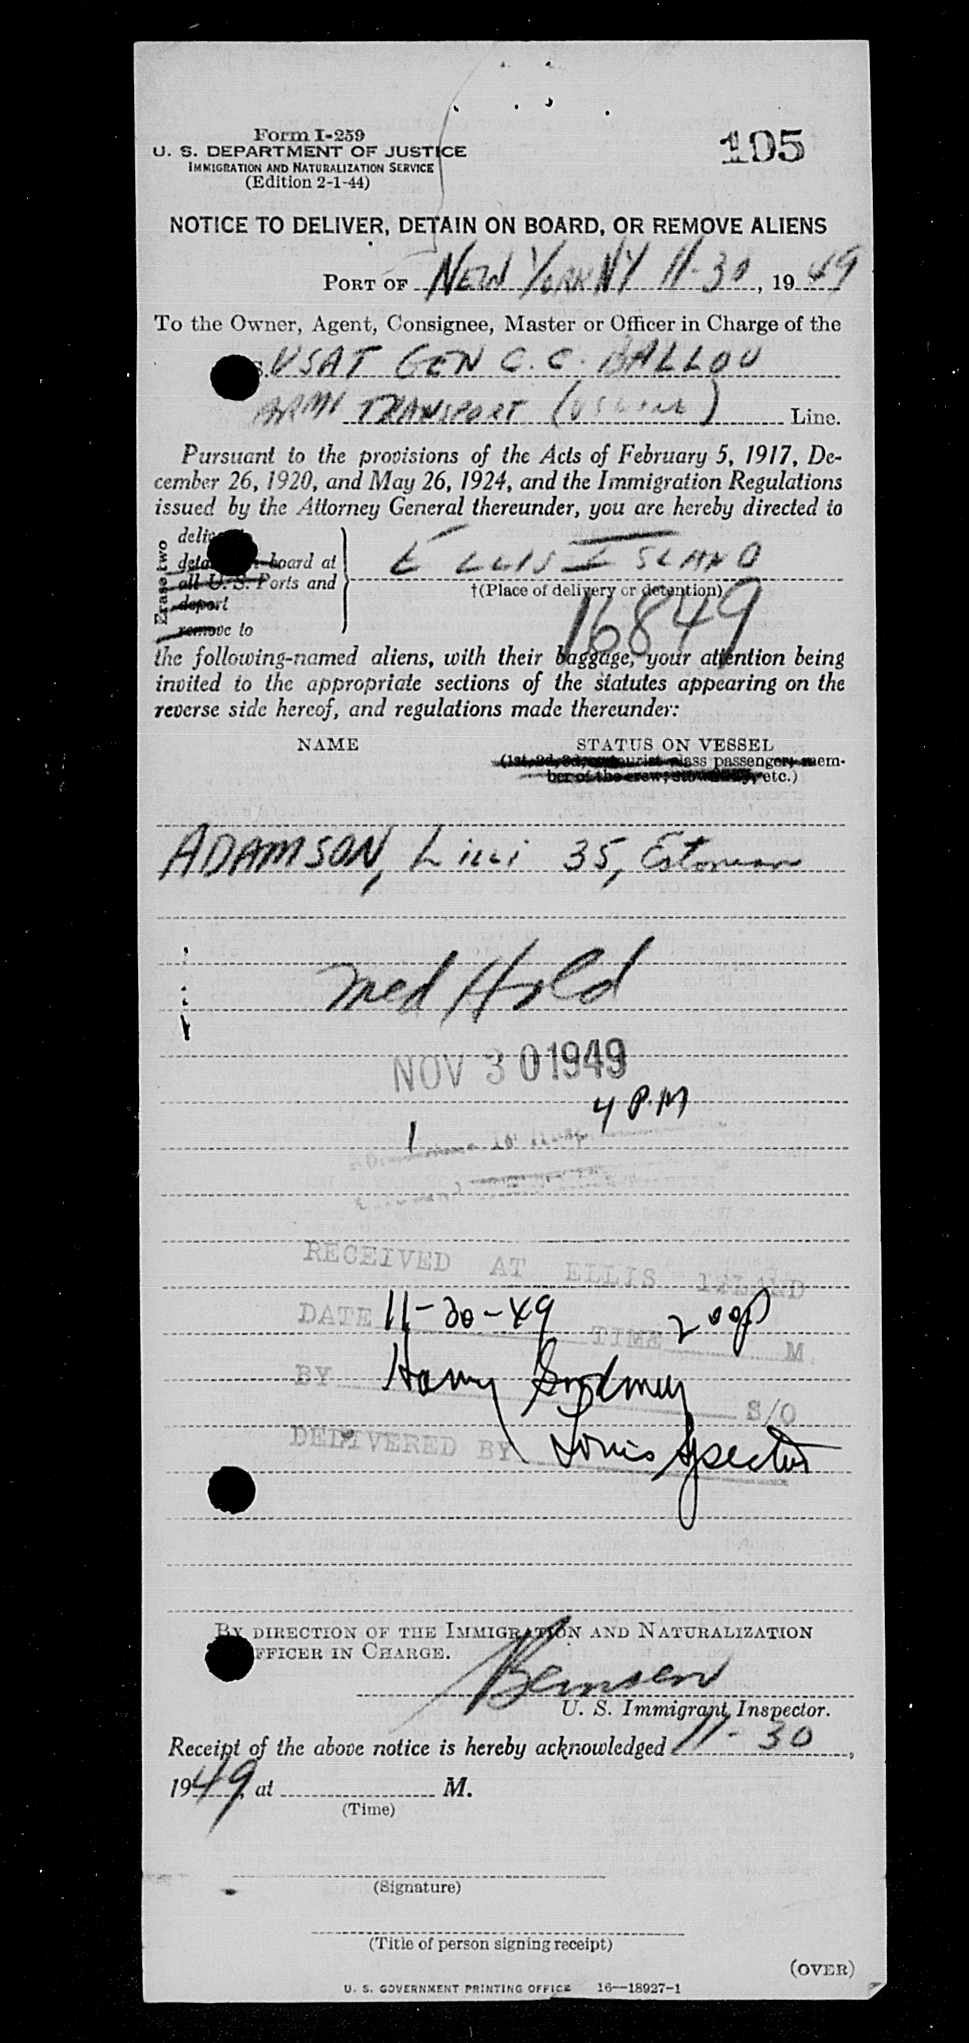 Form I-259
U. S. DEPARTMENT OF JUSTICE
IMMIGRATION AND NATURALIZATION SERVICE
(Edition 2-1-44)
105
NOTICE TO DELIVER, DETAIN ON BOARD, OR REMOVE ALIENS
PORT OF NEW YORK NY 11-30, 1949
To the Owner, Agent, Consignee, Master or Officer in Charge of the
USAT GEN C. C. BALLOU
ARMY TRANSPORT Line.
Pursuant to the provisions of the Acts of February 5, 1917, De-
cember 26, 1920, and May 26, 1924, and the Immigration Regulations
issued by the Attorney General thereunder, you are hereby directed to
Erase two
board at
all U. S. Ports and
deport
remove to
ELLIS ISLAND
†(Place of delivery or detention)
16849
the following-named aliens, with their baggage, your attention being
invited to the appropriate sections of the statutes appearing on the
reverse side hereof, and regulations made thereunder:
NAME STATUS ON VESSEL
(1st, 2d, 3d, or tourist class passenger, mem-
ber of the crew, stowaway, etc.)
ADAMSON, Lilli 35, Estonian
Med Hold
NOV 30 1949
4 P.M
1
RECEIVED AT ELLIS ISLAND
DATE 11-30-49 TIME 200P M.
BY Harry S/O
DELIVERED BY Louis Spector
BY DIRECTION OF THE IMMIGRATION AND NATURALIZATION
OFFICER IN CHARGE.
U. S. Immigrant Inspector.
Receipt of the above notice is hereby acknowledged 11-30,
1949, at M.
(Time)
(Signature)
(Title of person signing receipt)
(OVER)
U. S. GOVERNMENT PRINTING OFFICE 16—18927-1